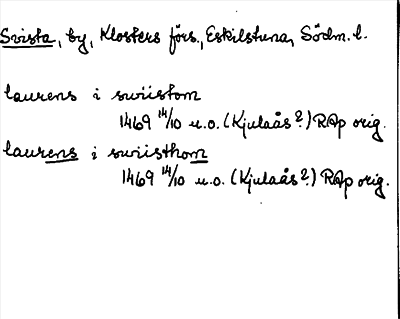 Svista, by, Klosters förs., Eskilstuna, Södm. l.
laurens i swiistom
1469 14/10 u.o. (Kjulaås?) RAp orig.
laurens i swiisthom
1469 14/10 u.o. (Kjulaås?) RAp orig.